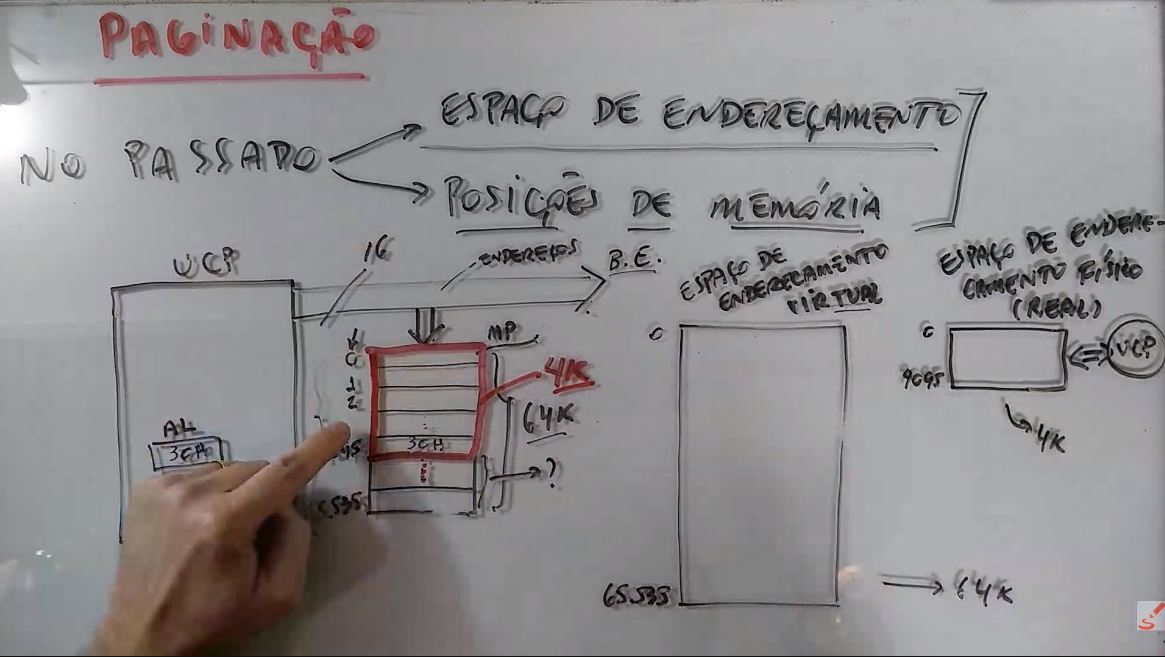 PAGINAÇÃO
ESPAÇO DE ENDEREÇAMENTO
NO PASSADO
POSIÇÕES DE MEMÓRIA
UCP
16
ENDEREÇOS
B.E.
MP
0
1
2
4K
64K
AL
3CH
3CH
?
5.535
ESPAÇO DE
ENDEREÇAMENTO
VIRTUAL
0
65.535
64K
ESPAÇO DE ENDERE-
ÇAMENTO FÍSICO
(REAL)
0
4095
UCP
4K